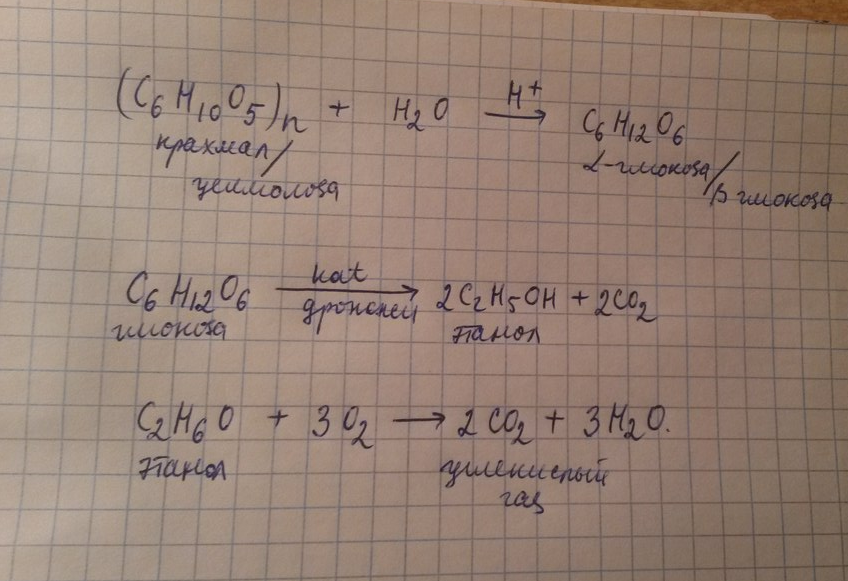 (C₆H₁₀O₅)n + H₂O —H⁺→ C₆H₁₂O₆
крахмал/ α-глюкоза/
целлюлоза β глюкоза
C₆H₁₂O₆ —kat дрожжей→ 2C₂H₅OH + 2CO₂
глюкоза этанол
C₂H₆O + 3O₂ → 2CO₂ + 3H₂O.
этанол углекислый
газ